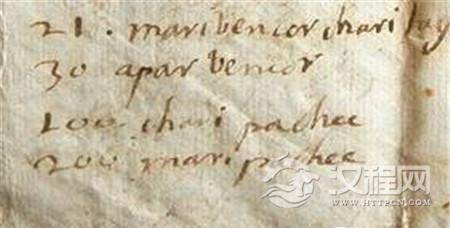 21. mari bencor chari tay
30 apar bencor
100 chari pachec
200 mari pachec
汉程网
WWW.HTTPCN.COM